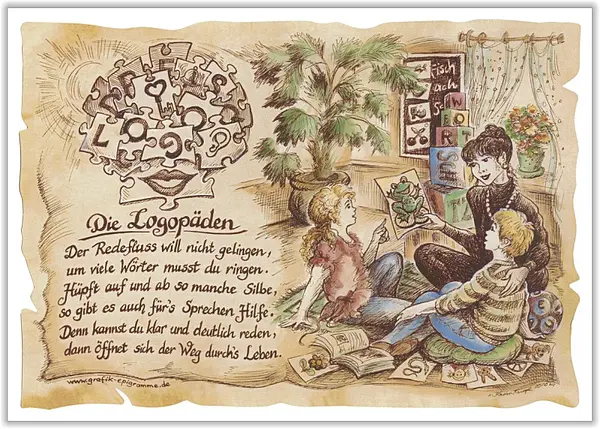 LOGO
Die Logopäden
Der Redefluss will nicht gelingen,
um viele Wörter musst du ringen.
Hüpft auf und ab so manche Silbe,
so gibt es auch für's Sprechen Hilfe.
Denn kannst du klar und deutlich reden,
dann öffnet sich der Weg durch's Leben.
www.grafik-epigramme.de
Fisch
ach
Sch
WORT